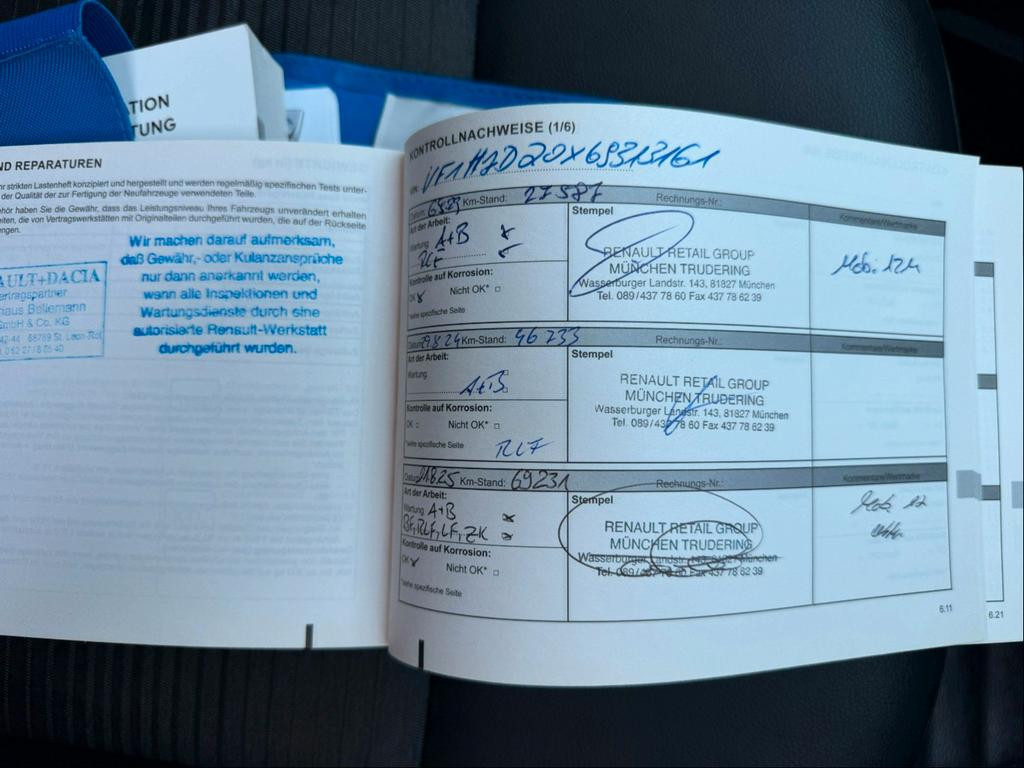 TION
TUNG
ND REPARATUREN
hr strikten Lastenheft konzipiert und hergestellt und werden regelmäßig spezifischen Tests unter-
der Qualität der zur Fertigung der Neufahrzeuge verwendeten Teile.
ehör haben Sie die Gewähr, dass das Leistungsniveau Ihres Fahrzeugs unverändert erhalten
eiten, die von Vertragswerkstätten mit Originalteilen durchgeführt wurden, die auf der Rückseite
ngen.
AULT+DACIA
ertragspartner
haus Bellemann
GmbH & Co. KG
68789 St. Leon-Rot
Wir machen darauf aufmerksam,
daß Gewähr,- oder Kulanzansprüche
nur dann anerkannt werden,
wenn alle Inspektionen und
Wartungsdienste durch eine
autorisierte Renault-Werkstatt
durchgeführt wurden.
KONTROLLNACHWEISE (1/6)
VIN: VF1HJD20X69313161
Datum: 6.8.23 Km-Stand: 27587 Rechnungs-Nr.:
Art der Arbeit:
Wartung A+B
RLF
Kontrolle auf Korrosion:
OK Nicht OK*
*siehe spezifische Seite
Stempel
RENAULT RETAIL GROUP
MÜNCHEN TRUDERING
Wasserburger Landstr. 143, 81827 München
Tel. 089/437 78 60 Fax 437 78 62 39
Kommentare/Wertmarke
Mobi 12M
Km-Stand: 46233 Rechnungs-Nr.:
Art der Arbeit:
Wartung
A+B
Kontrolle auf Korrosion:
OK Nicht OK*
*siehe spezifische Seite RLF
Stempel
RENAULT RETAIL GROUP
MÜNCHEN TRUDERING
Wasserburger Landstr. 143, 81827 München
Tel. 089/437 78 60 Fax 437 78 62 39
Kommentare/Wertmarke
Km-Stand: 69231 Rechnungs-Nr.:
Art der Arbeit:
Wartung A+B
BF, RLF, LF, ZK
Kontrolle auf Korrosion:
OK Nicht OK*
*siehe spezifische Seite
Stempel
RENAULT RETAIL GROUP
MÜNCHEN TRUDERING
Wasserburger Landstr. 143, 81827 München
Tel. 089/437 78 60 Fax 437 78 62 39
Kommentare/Wertmarke
Mobi 12
6.11
6.21